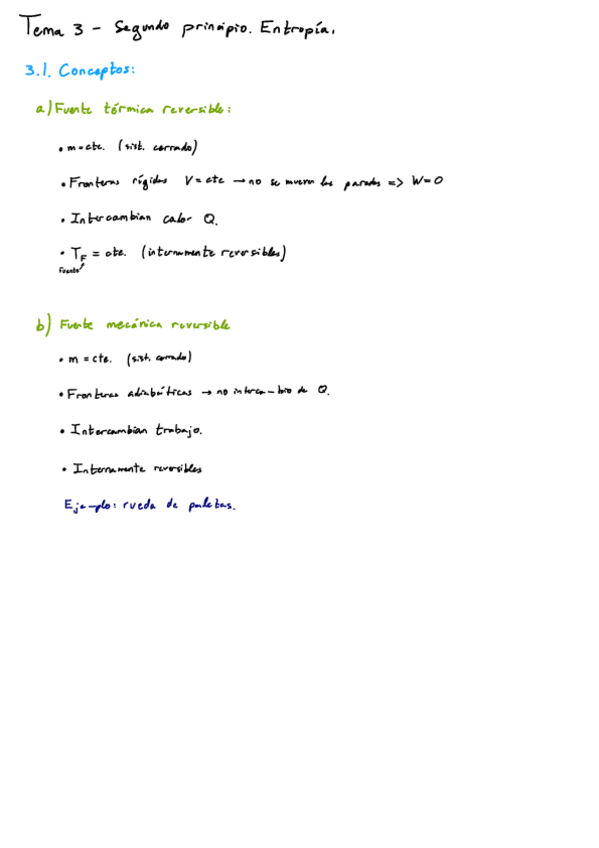 Tema 3 - Segundo principio. Entropía.
3.1. Conceptos:
a) Fuente térmica reversible:
• m=cte. (sist. cerrado)
• Fronteras rígidas V=cte → no se mueven las paredes => W=0
• Intercambian calor Q.
• T_F = cte. (internamente reversibles)
Fuente
b) Fuente mecánica reversible
• m = cte. (sist. cerrado)
• Fronteras adiabáticas → no intercambio de Q.
• Intercambian trabajo.
• Internamente reversibles
Ejemplo: rueda de paletas.